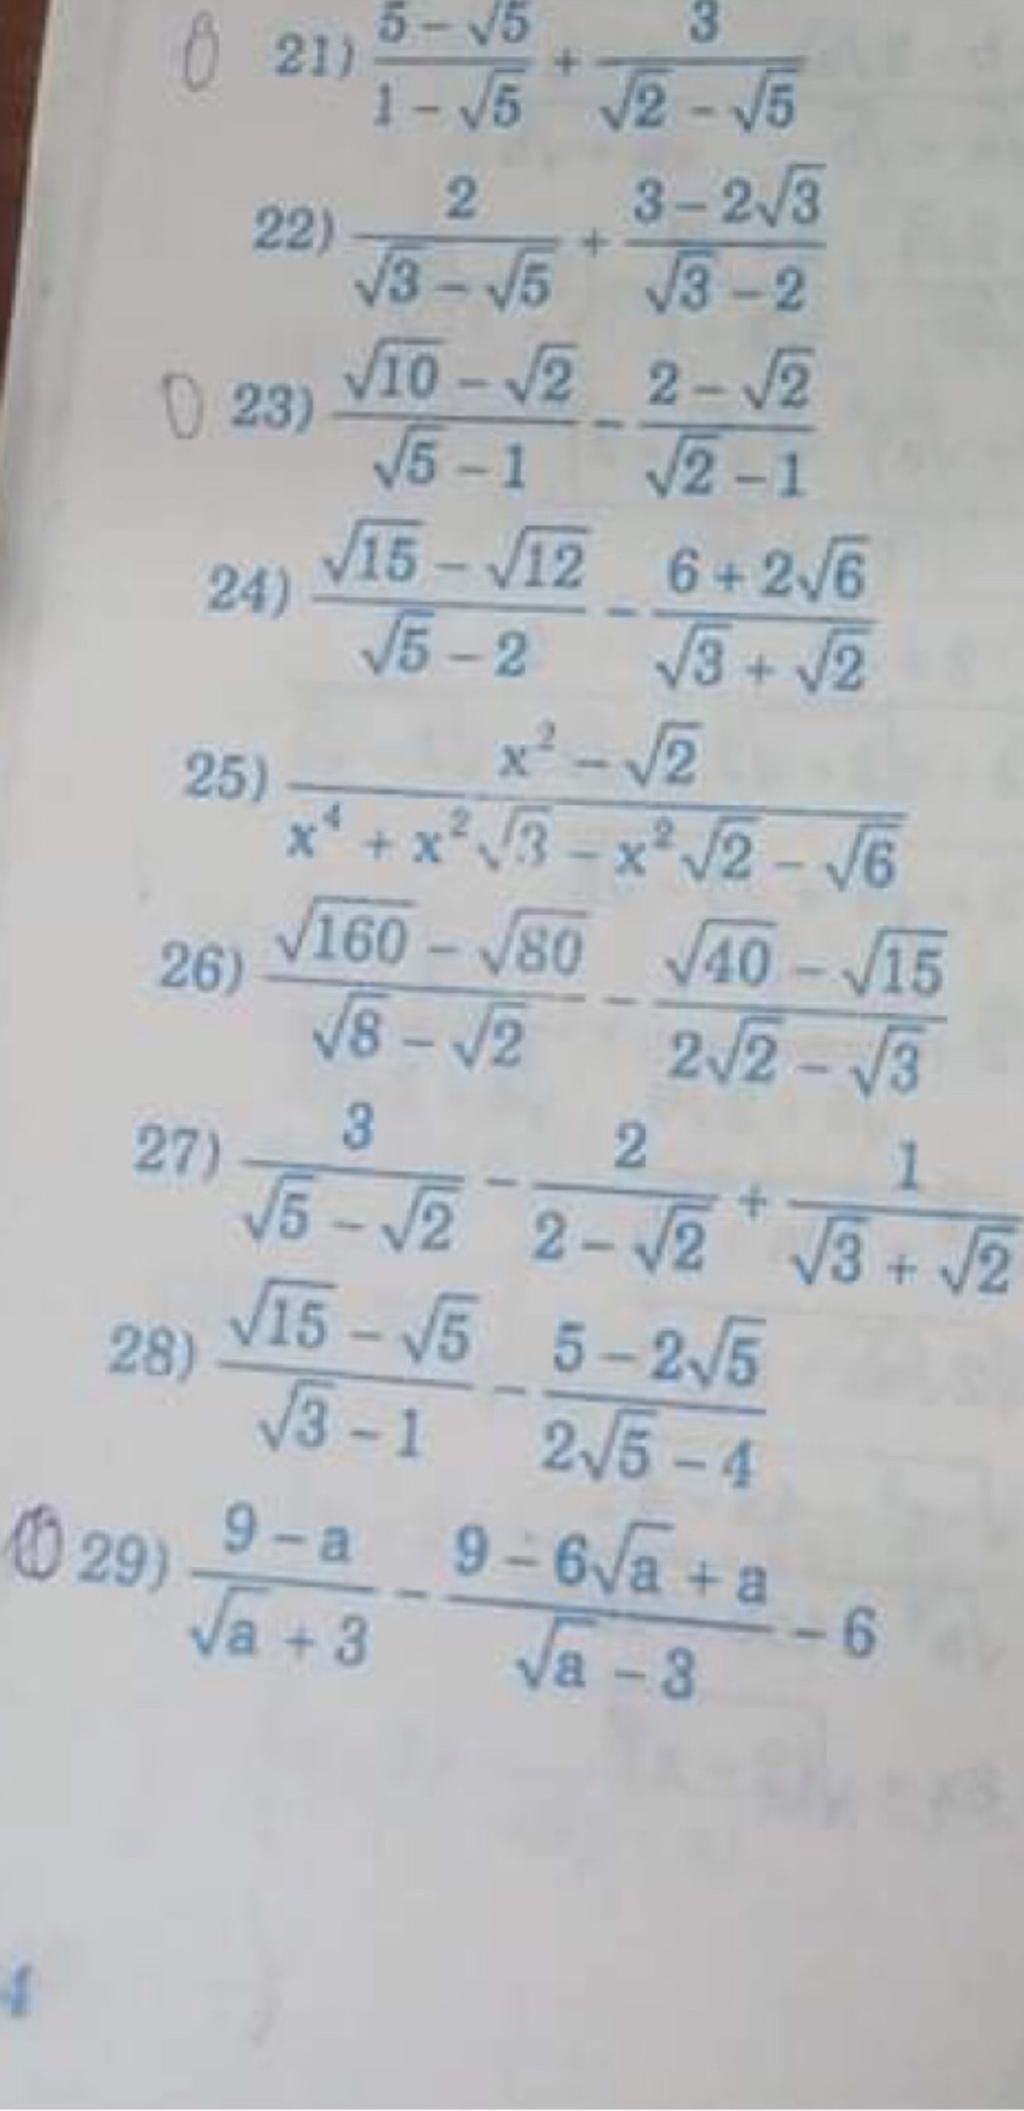 21) (5 - √5)/(1 - √5) + 3/(√2 - √5)
22) 2/(√3 - √5) + (3 - 2√3)/(√3 - 2)
23) (√10 - √2)/(√5 - 1) - (2 - √2)/(√2 - 1)
24) (√15 - √12)/(√5 - 2) - (6 + 2√6)/(√3 + √2)
25) (x² - √2)/(x⁴ + x²√3 - x²√2 - √6)
26) (√160 - √80)/(√8 - √2) - (√40 - √15)/(2√2 - √3)
27) 3/(√5 - √2) - 2/(2 - √2) + 1/(√3 + √2)
28) (√15 - √5)/(√3 - 1) - (5 - 2√5)/(2√5 - 4)
29) (9 - a)/(√a + 3) - (9 - 6√a + a)/(√a - 3) - 6
4